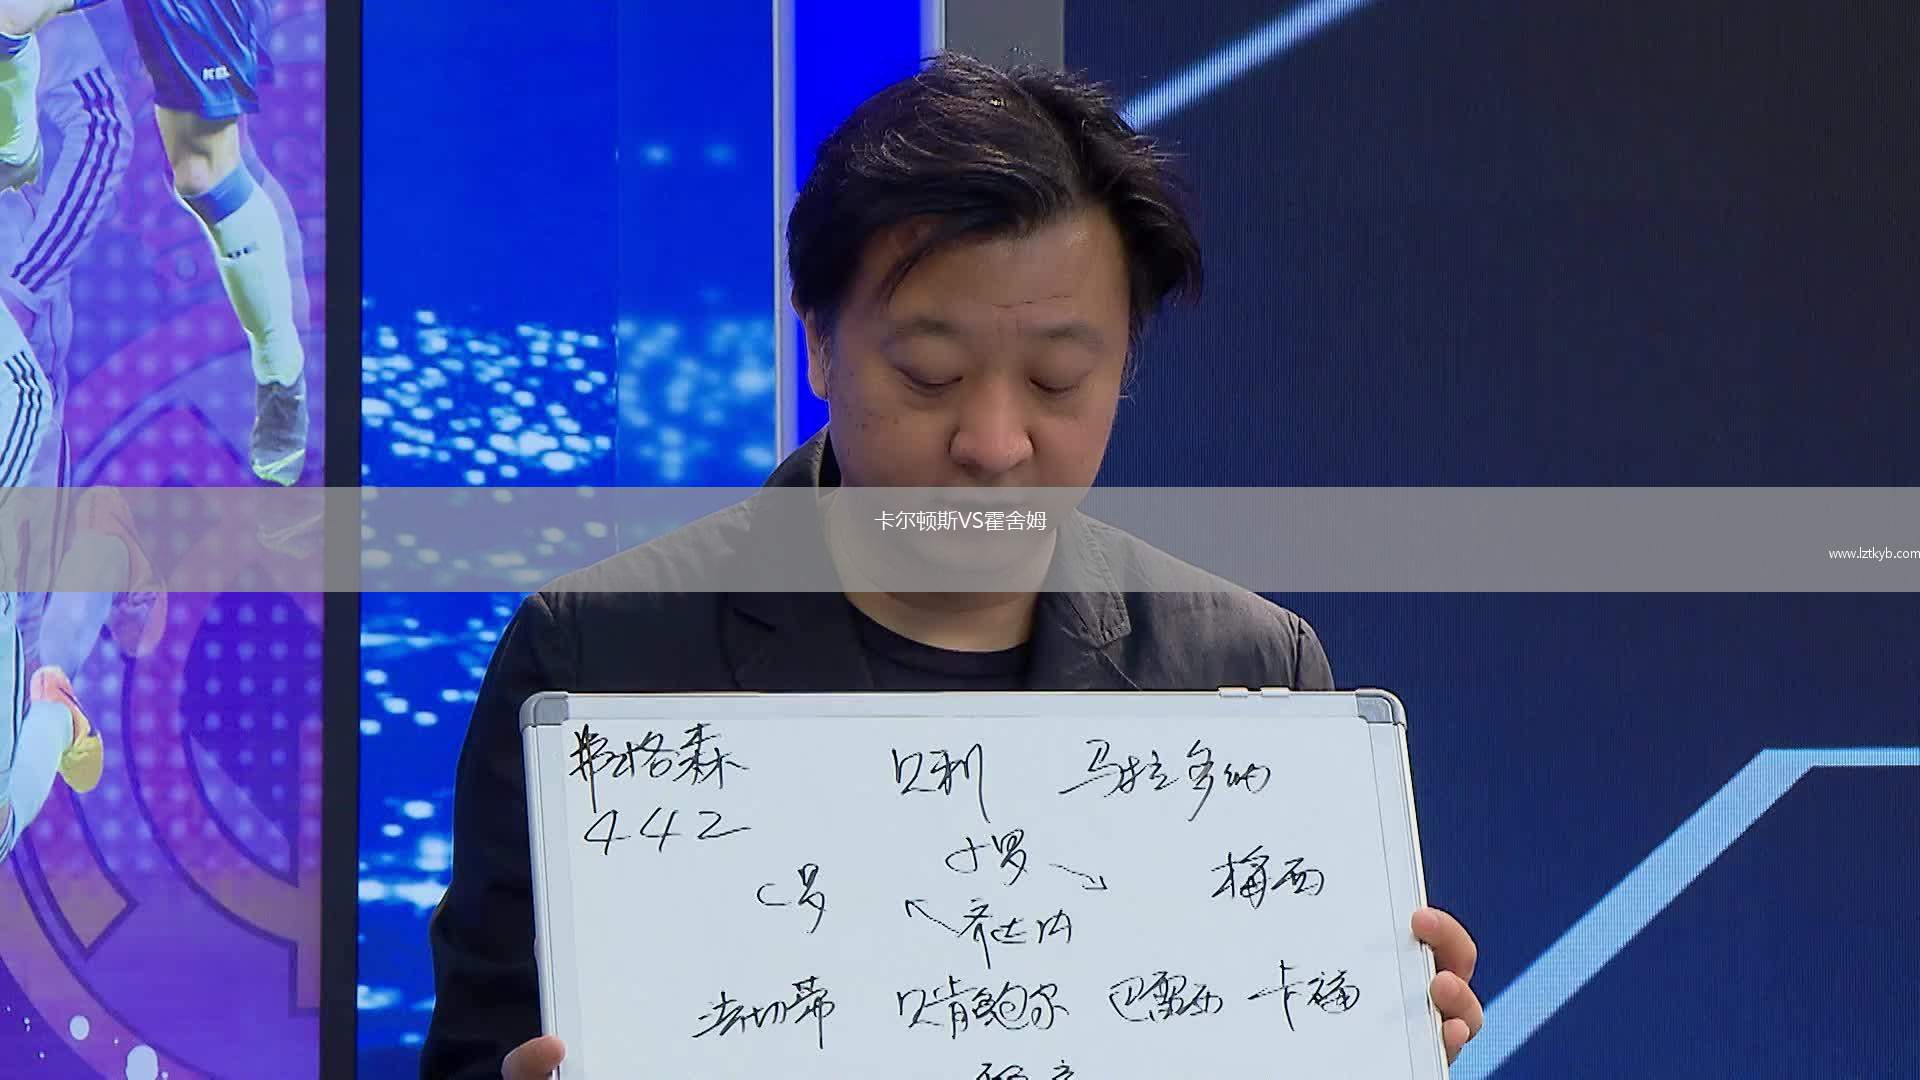 卡尔顿斯VS霍舍姆
www.lztkyb.com
弗格森 贝利 马拉多纳
442
小罗
C罗 梅西
齐达内
法切蒂 贝肯鲍尔 巴雷西 卡福